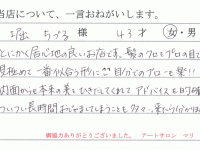 当店について、一言おねがいします。
堀 ちづる 様 43才 女・男
とにかく居心地の良いお店です。髪のクセとプロの目で
見極めて一番似合う形に♡自分でのブローも楽!!
内面から本来の美しさをひきだしてくれて アドバイスも的確
ついつい長時間おじゃましてしまうことも多々…
御協力ありがとうございました。 アートサロン マリ